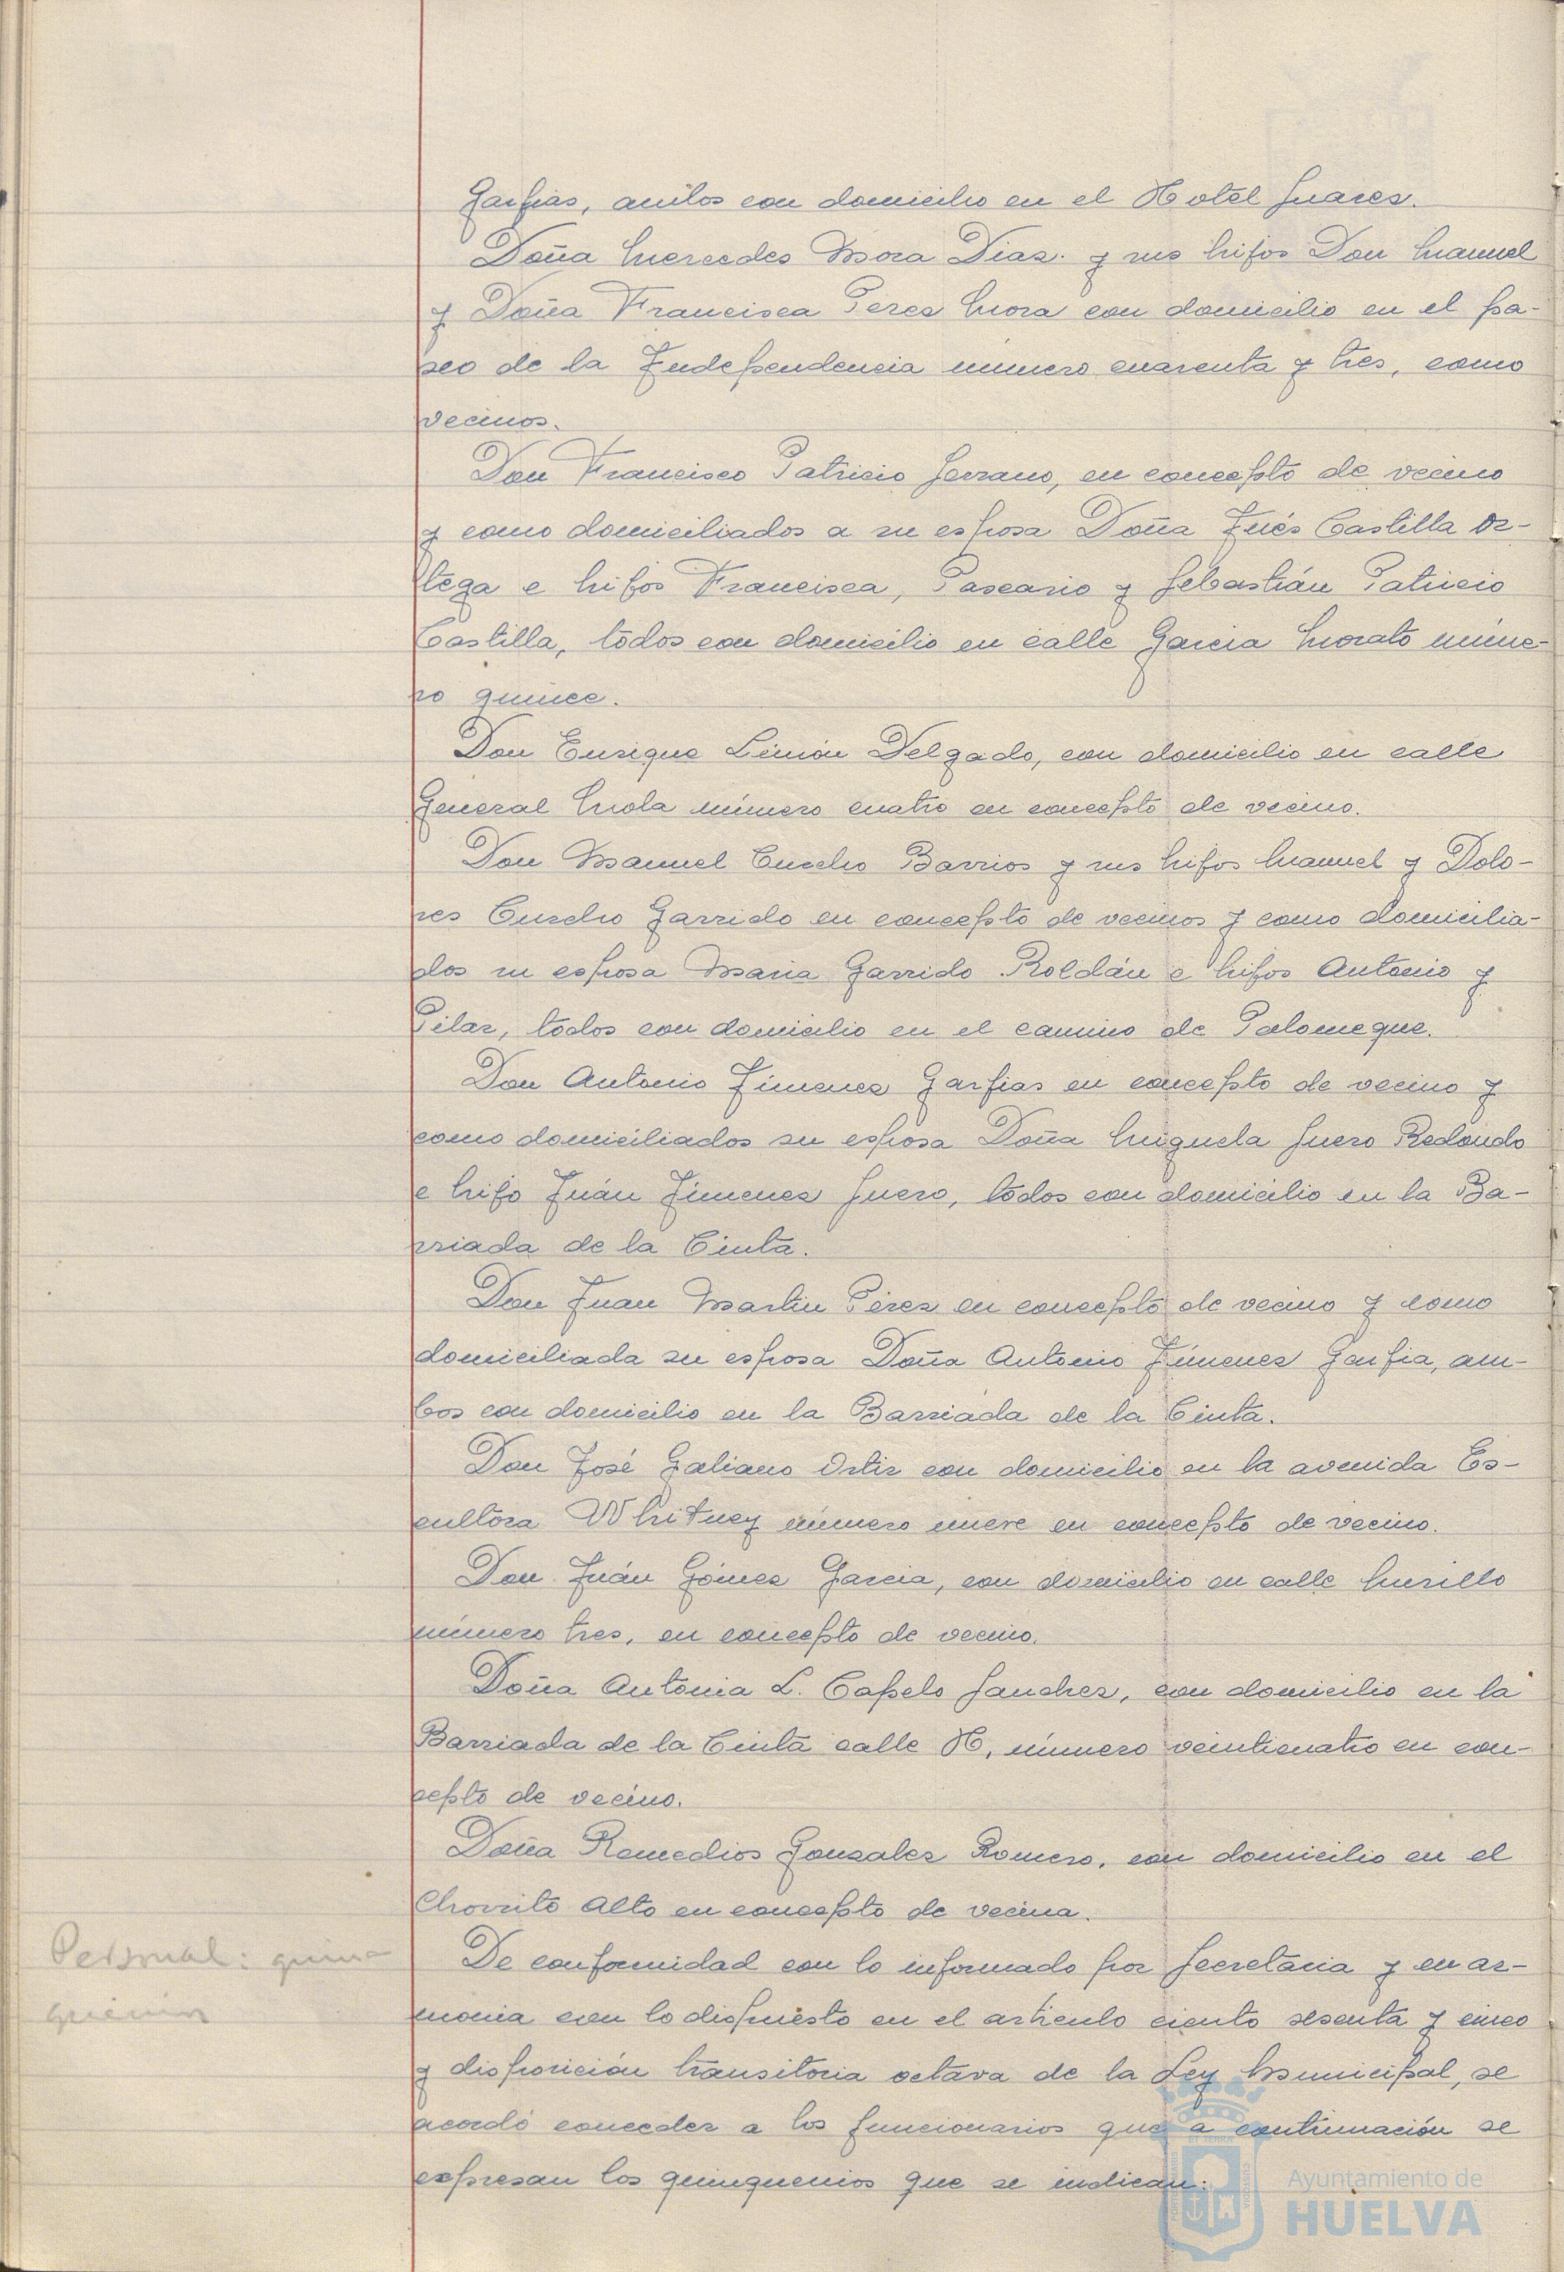 Garfias, ambos con domicilio en el Hotel Suarez.
Doña Mercedes Mora Diaz. y sus hijos Don Manuel
y Doña Francisca Perez Mora con domicilio en el pa-
seo de la Independencia número cuarenta y tres, como
vecinos.
Don Francisco Patricio Serrano, en concepto de vecino
y como domiciliados a su esposa Doña Inés Castilla Or-
tega e hijos Francisca, Pascasio y Sebastián Patricio
Castilla, todos con domicilio en calle Garcia Morato núme-
ro quince.
Don Enrique Limón Delgado, con domicilio en calle
General Mola número cuatro en concepto de vecino.
Don Manuel Curcho Barrios y sus hijos Manuel y Dolo-
res Curcho Garrido en concepto de vecinos y como domicilia-
dos su esposa Maria Garrido Roldán e hijos Antonio y
Pilar, todos con domicilio en el camino de Palomeque.
Don Antonio Jimenez Garfias en concepto de vecino y
como domiciliados su esposa Doña Miguela Suero Redondo
e hijo Juán Jimenez Suero, todos con domicilio en la Ba-
rriada de la Cinta.
Don Juan Martin Pérez en concepto de vecino y como
domiciliada su esposa Doña Antonio Jimenez Garfia, am-
bos con domicilio en la Barriada de la Cinta.
Don José Galiano Ortiz con domicilio en la avenida Es-
cultora Whitney número nueve en concepto de vecino.
Don Juán Gómez Garcia, con domicilio en calle Murillo
número tres, en concepto de vecino.
Doña Antonia L. Capelo Sanchez, con domicilio en la
Barriada de la Cinta calle H, número veinticuatro en con-
cepto de vecino.
Doña Remedios Gonzalez Romero, con domicilio en el
Chorrito Alto en concepto de vecina.
Personal: quin-
quenios
De conformidad con lo informado por Secretaria y en ar-
monia con lo dispuesto en el articulo ciento sesenta y cinco
y disposición transitoria octava de la Ley Municipal, se
acordó conceder a los funcionarios que a continuación se
expresan los quinquenios que se indican:
Ayuntamiento de
HUELVA